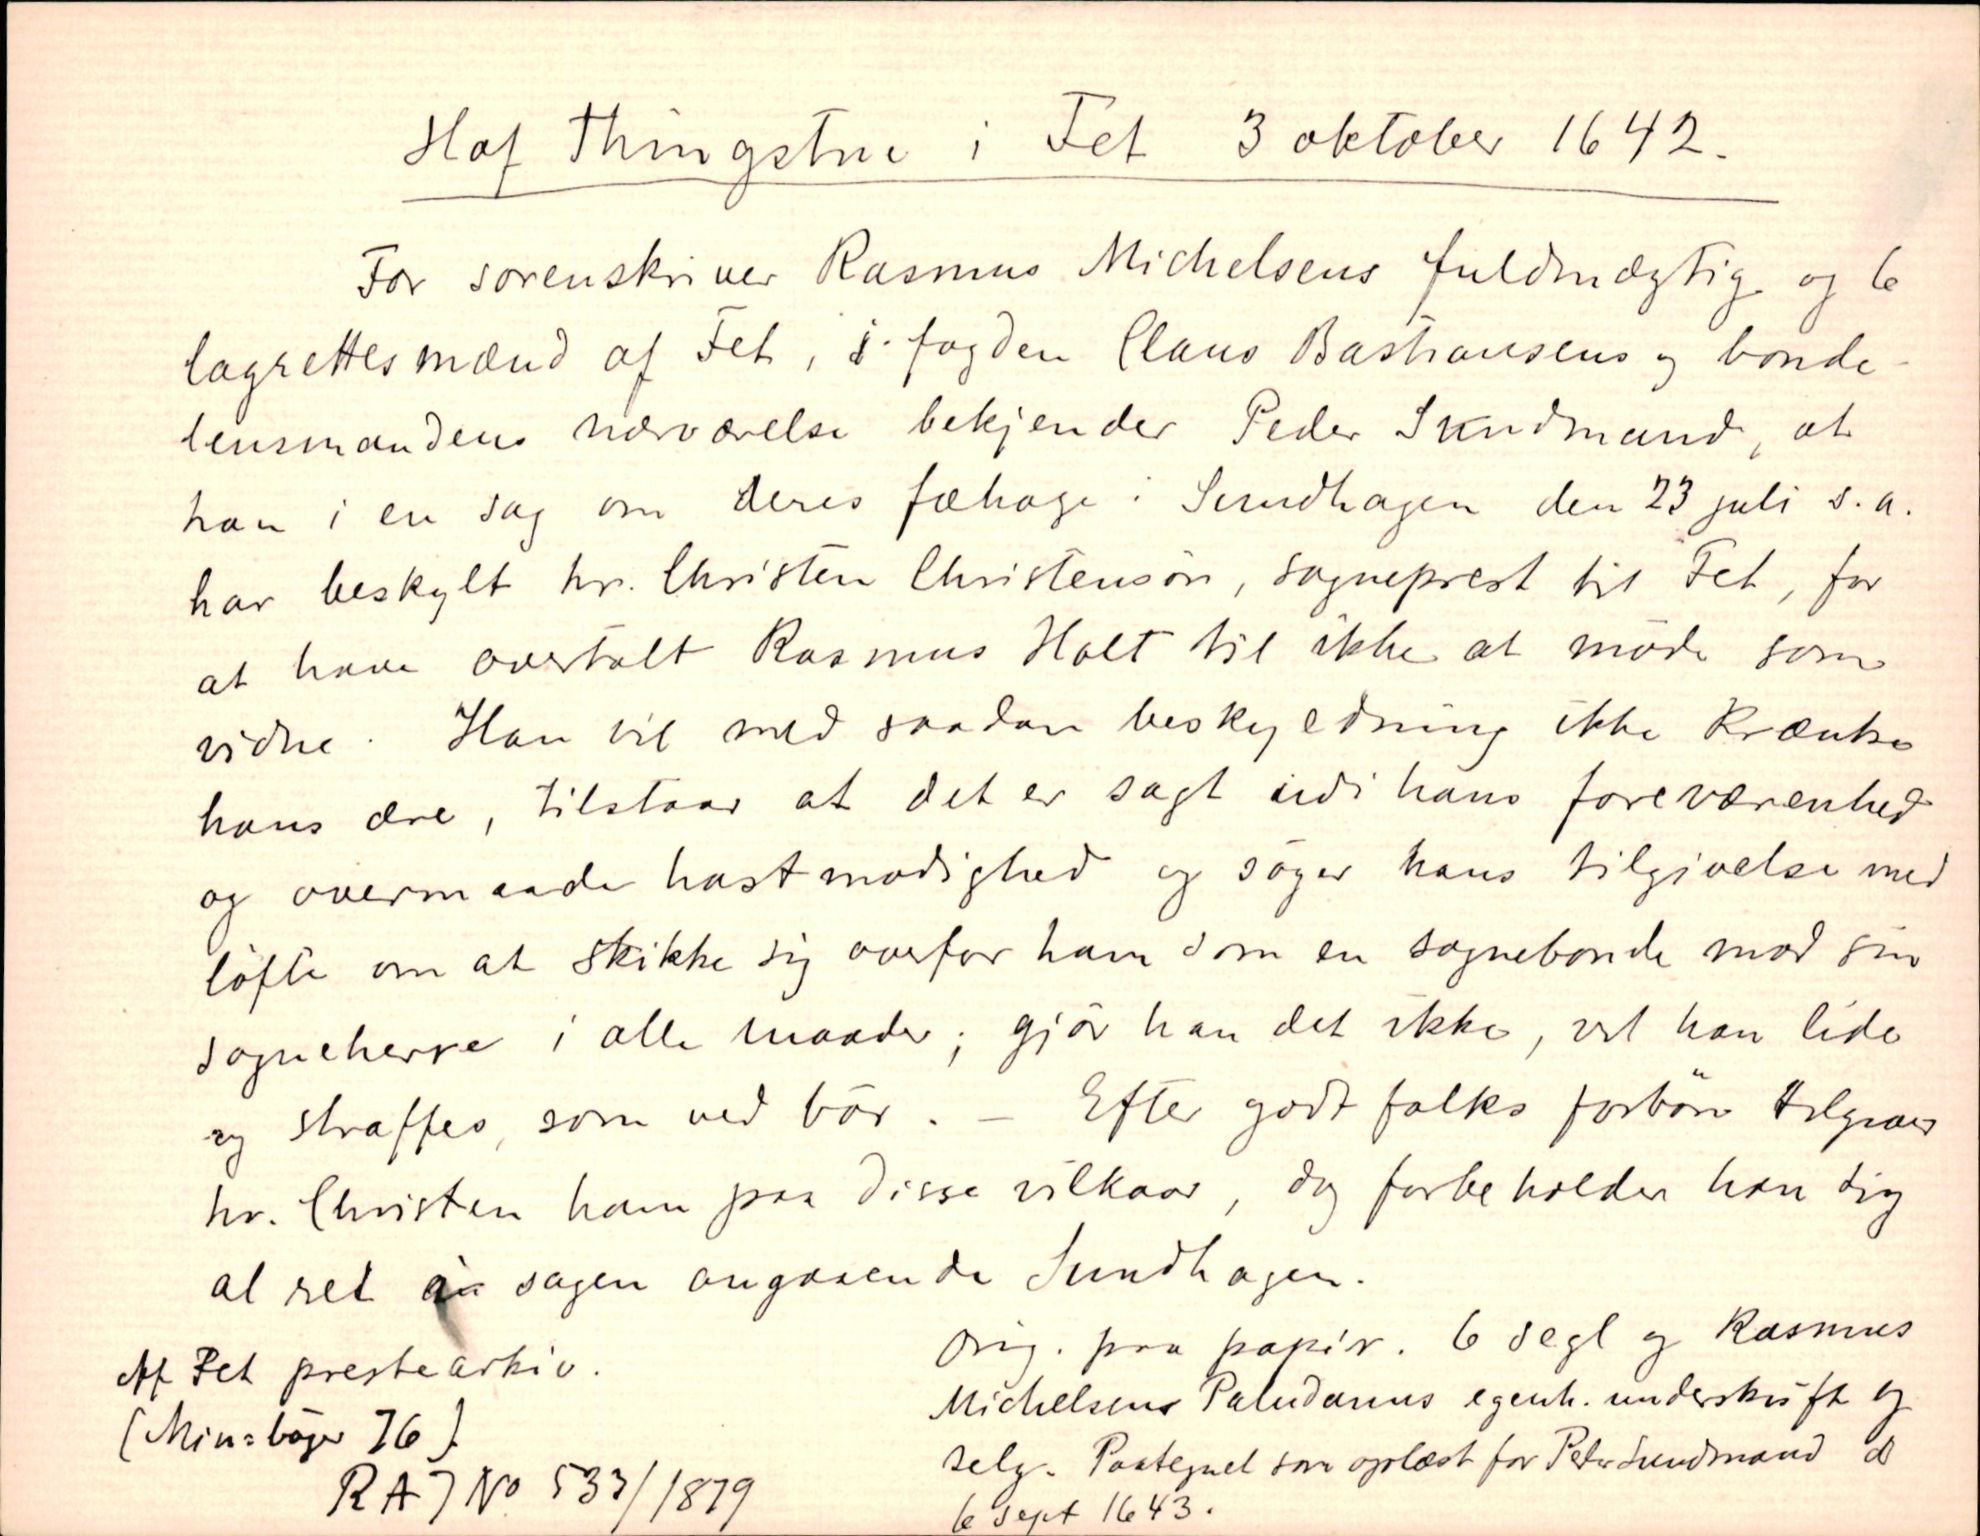 Hof Thingstue i Fet 3 oktober 1642.
For sorenskriver Rasmus Michelsens fuldmægtig og 6
lagrettesmænd af Fet, i fogden Claus Bastiansens og bonde-
lensmandens nærværelse bekjender Peder Sundmand, at
han i en sag om deres fæhage i Sundhagen den 23 juli s.a.
har beskylt hr. Christen Christensön, sogneprest til Fet, for
at have overtalt Rasmus Holt til ikke at möde som
vidne. Han vil med saadan beskyldning ikke krænke
hans ære, tilstaar at det er sagt udi hans
og overmaade hastmodighed og söger hans tilgivelse med
löfte om at skikke sig overfor ham som en sognebonde mod sin
sogneherre i alle maader; gjör han det ikke, vil han lide
og straffes, som ved bör. — Efter godt folks forbön tilgiver
hr. Christen ham paa disse vilkaar, dog forbeholder han sig
al ret i sagen angaaende Sundhagen.
Orig. paa papir. 6 segl og Rasmus
Michelsens Paludanus egenh. underskrift og
Paategnet som oplæst for Peder Sundmand d
6 sept 1643.
Af Fet prestearkiv.
(Min: böger 76)
RA J No 533/1879